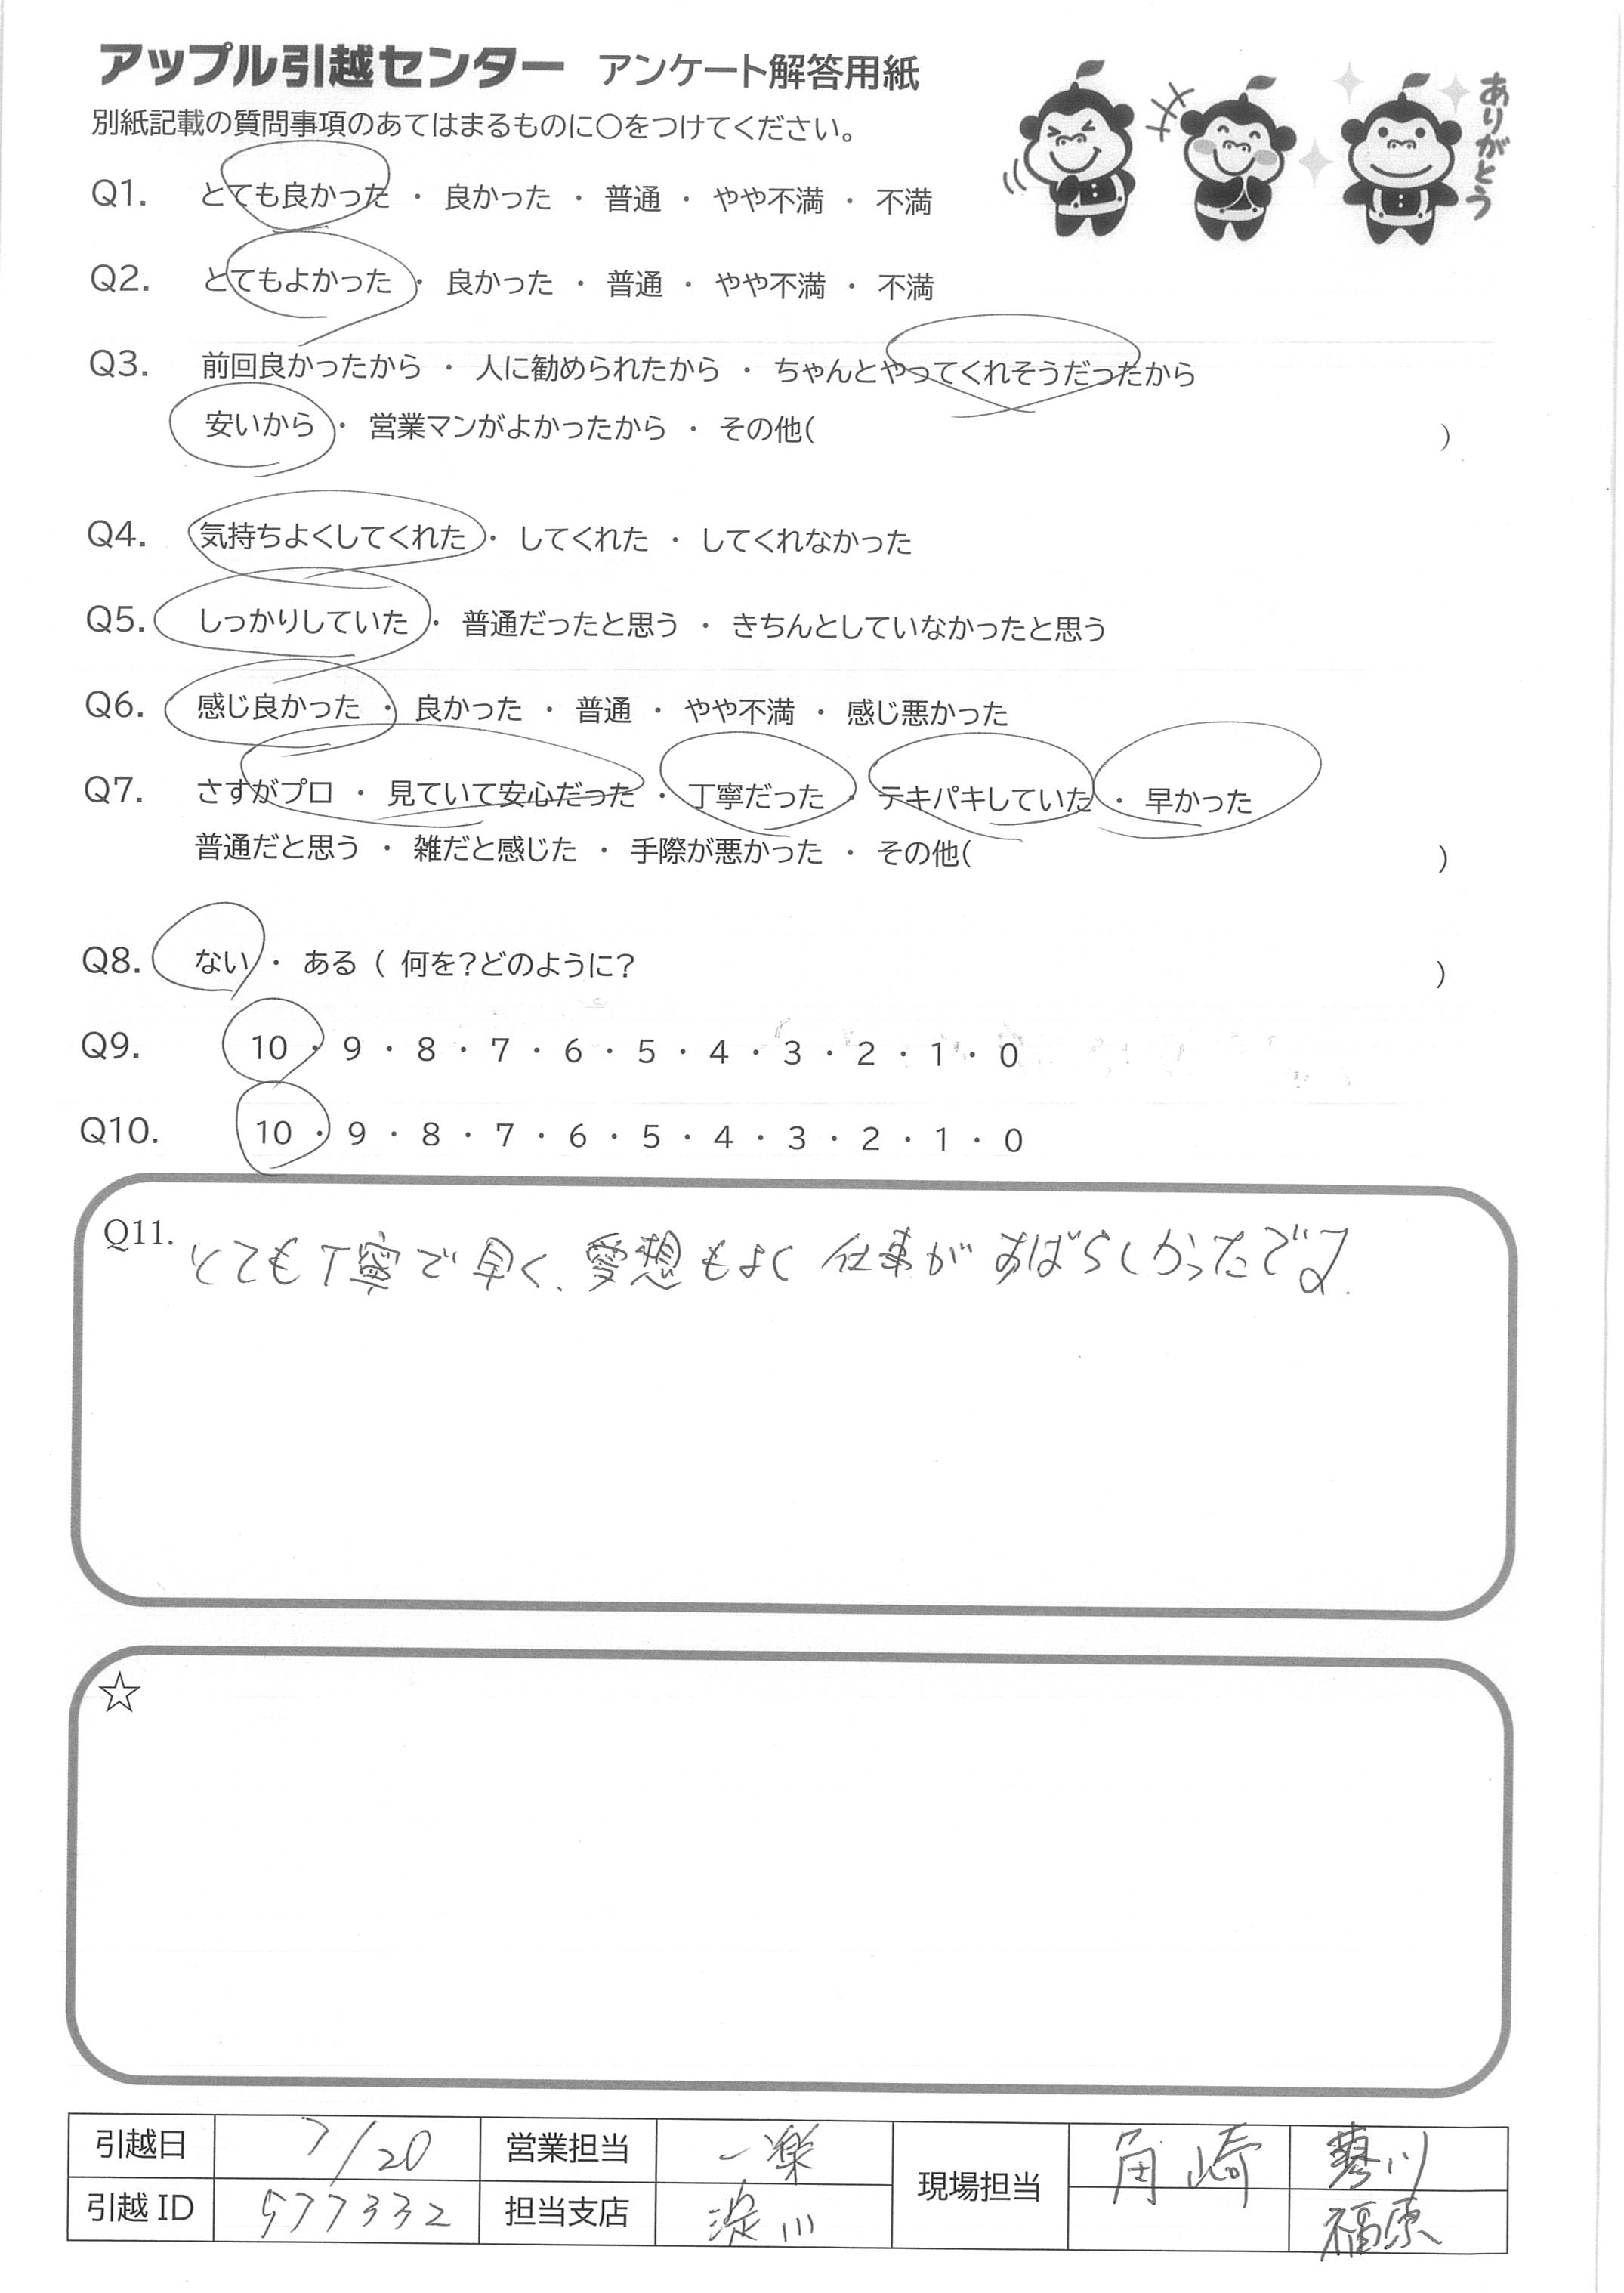 アップル引越センター アンケート解答用紙
別紙記載の質問事項のあてはまるものに○をつけてください。
ありがとう
Q1. とても良かった ・ 良かった ・ 普通 ・ やや不満 ・ 不満
Q2. とてもよかった ・ 良かった ・ 普通 ・ やや不満 ・ 不満
Q3. 前回良かったから ・ 人に勧められたから ・ ちゃんとやってくれそうだったから
安いから ・ 営業マンがよかったから ・ その他( )
Q4. 気持ちよくしてくれた ・ してくれた ・ してくれなかった
Q5. しっかりしていた ・ 普通だったと思う ・ きちんとしていなかったと思う
Q6. 感じ良かった ・ 良かった ・ 普通 ・ やや不満 ・ 感じ悪かった
Q7. さすがプロ ・ 見ていて安心だった ・ 丁寧だった ・ テキパキしていた ・ 早かった
普通だと思う ・ 雑だと感じた ・ 手際が悪かった ・ その他( )
Q8. ない ・ ある ( 何を?どのように? )
Q9. 10 ・ 9 ・ 8 ・ 7 ・ 6 ・ 5 ・ 4 ・ 3 ・ 2 ・ 1 ・ 0
Q10. 10 ・ 9 ・ 8 ・ 7 ・ 6 ・ 5 ・ 4 ・ 3 ・ 2 ・ 1 ・ 0
Q11. とても丁寧で早く、愛想もよく仕事がすばらしかったです.
☆
引越日 7/20 営業担当 一楽 現場担当 角崎
引越ID 577332 担当支店 淀川 福原